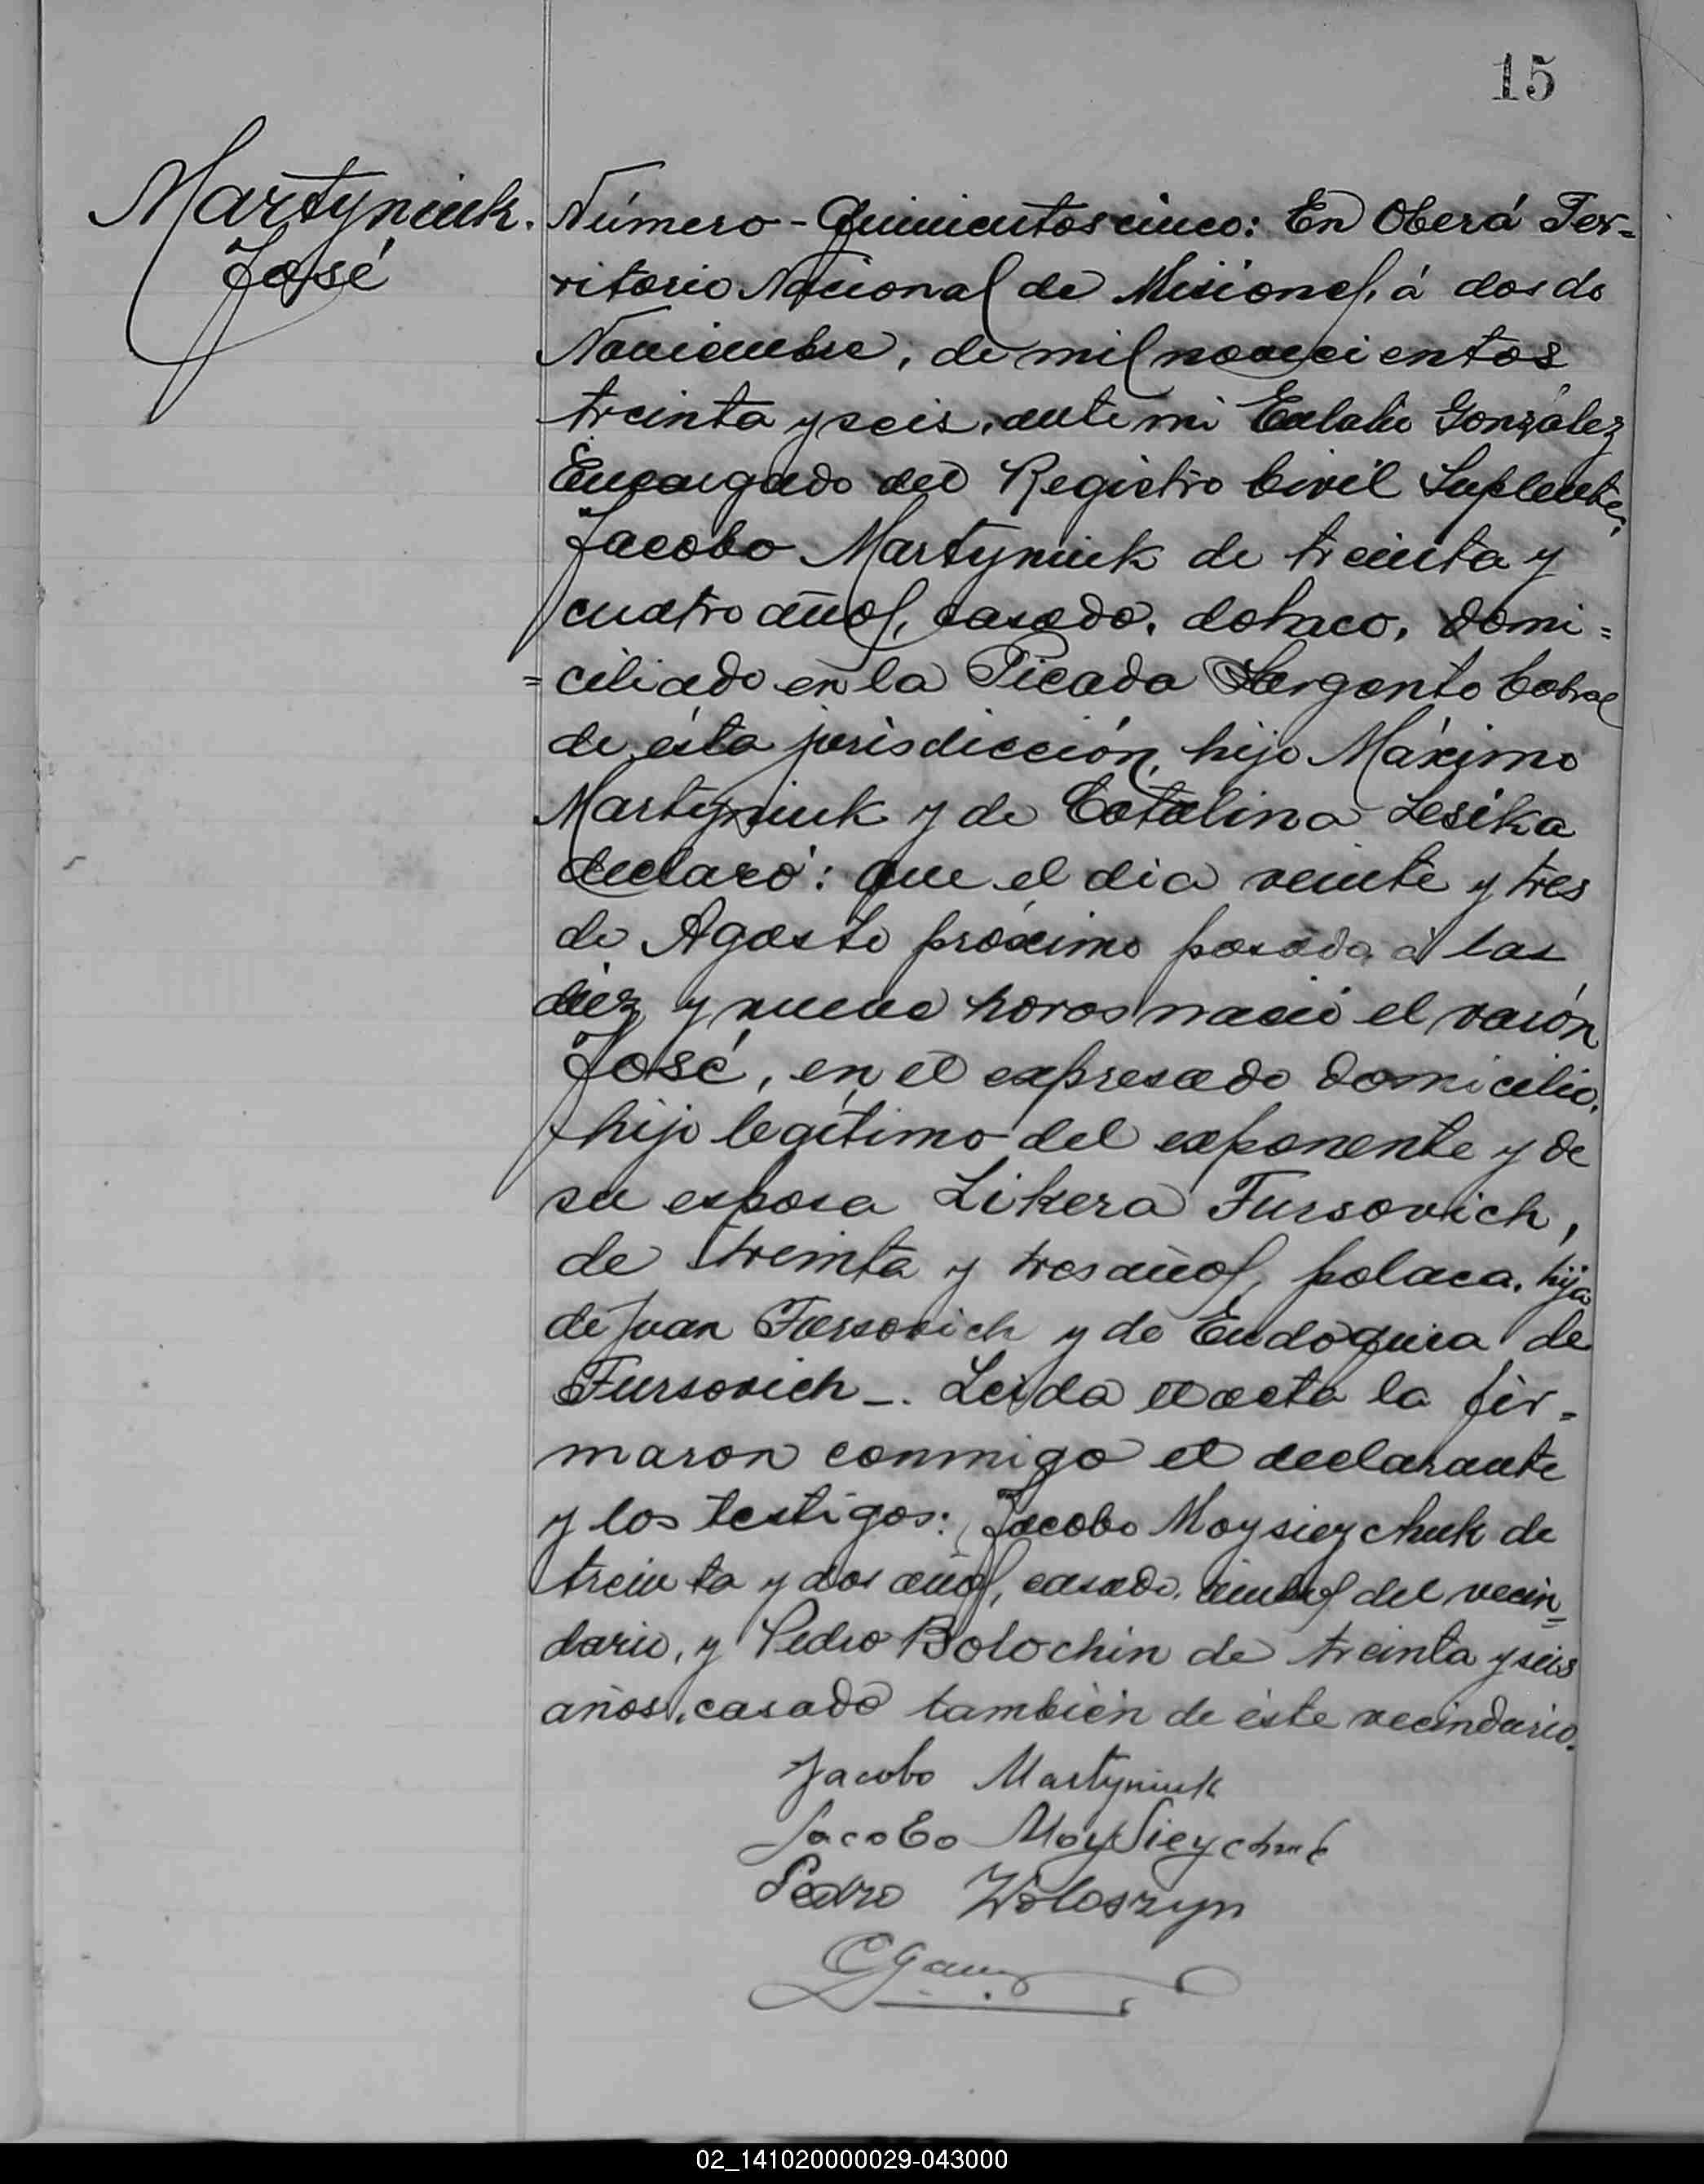 15
Martyniuk.
José
Número - Quinientos cinco: En Oberá Ter=
ritorio Nacional de Misiones, á dos de
Noviembre, de mil novecientos
treinta y seis, ante mi Eulalio González
Encargado del Registro Civil Suplente,
Jacobo Martyniuk de treinta y
cuatro años, casado, domi=
=ciliado en la Picada Sargento Cabral
de ésta jurisdicción, hijo Máximo
Martyniuk y de Catalina Lesika
declaró: que el dia veinte y tres
de Agosto próximo pasado, á las
diez y nueve horas nació el varón
José, en el expresado domicilio,
hijo legítimo del exponente y de
su esposa Likera Fursovich,
de treinta y tres años, polaca, hija
de Juan Fursovich y de Eudoquia de
Fursovich -. Leida el acta la fir=
maron conmigo el declarante
y los testigos: Jacobo Moysieychuk de
treinta y dos años, casado, del vecin=
dario, y Pedro Bolochin de treinta y seis
años, casado también de éste vecindario.
Jacobo Martyniuk
Jacobo Moysieychuk
Pedro Woloszyn
02_141020000029-043000